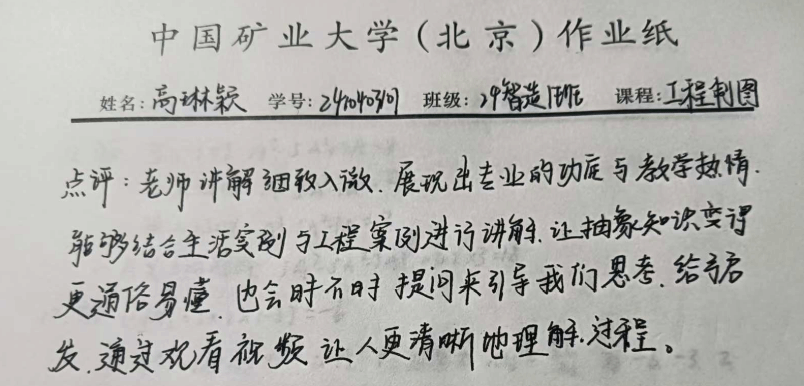 中国矿业大学(北京)作业纸
姓名:高琳颖 学号:2410403101 班级:24智造1班 课程:工程制图
点评:老师讲解细致入微、展现出专业的功底与教学热情.
能够结合生活实例与工程案例进行讲解.让抽象知识变得
更通俗易懂.也会时不时提问来引导我们思考.给予启
发.通过观看视频让人更清晰地理解过程。